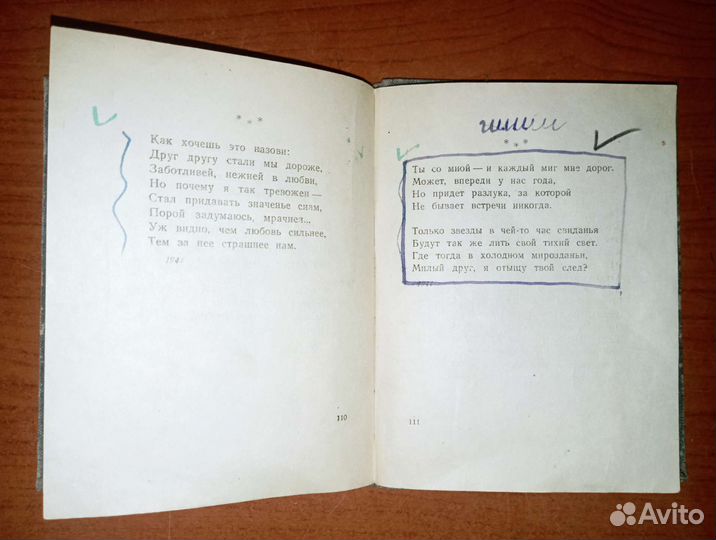 * * *
Как хочешь это назови:
Друг другу стали мы дороже,
Заботливей, нежней в любви,
Но почему я так тревожен —
Стал придавать значенье снам,
Порой задумаюсь, мрачнея...
Уж видно, чем любовь сильнее,
Тем за нее страшнее нам.
1941
110
* * *
Ты со мной — и каждый миг мне дорог.
Может, впереди у нас года,
Но придет разлука, за которой
Не бывает встречи никогда.
Только звезды в чей-то час свиданья
Будут так же лить свой тихий свет.
Где тогда в холодном мирозданьи,
Милый друг, я отыщу твой след?
111
Avito